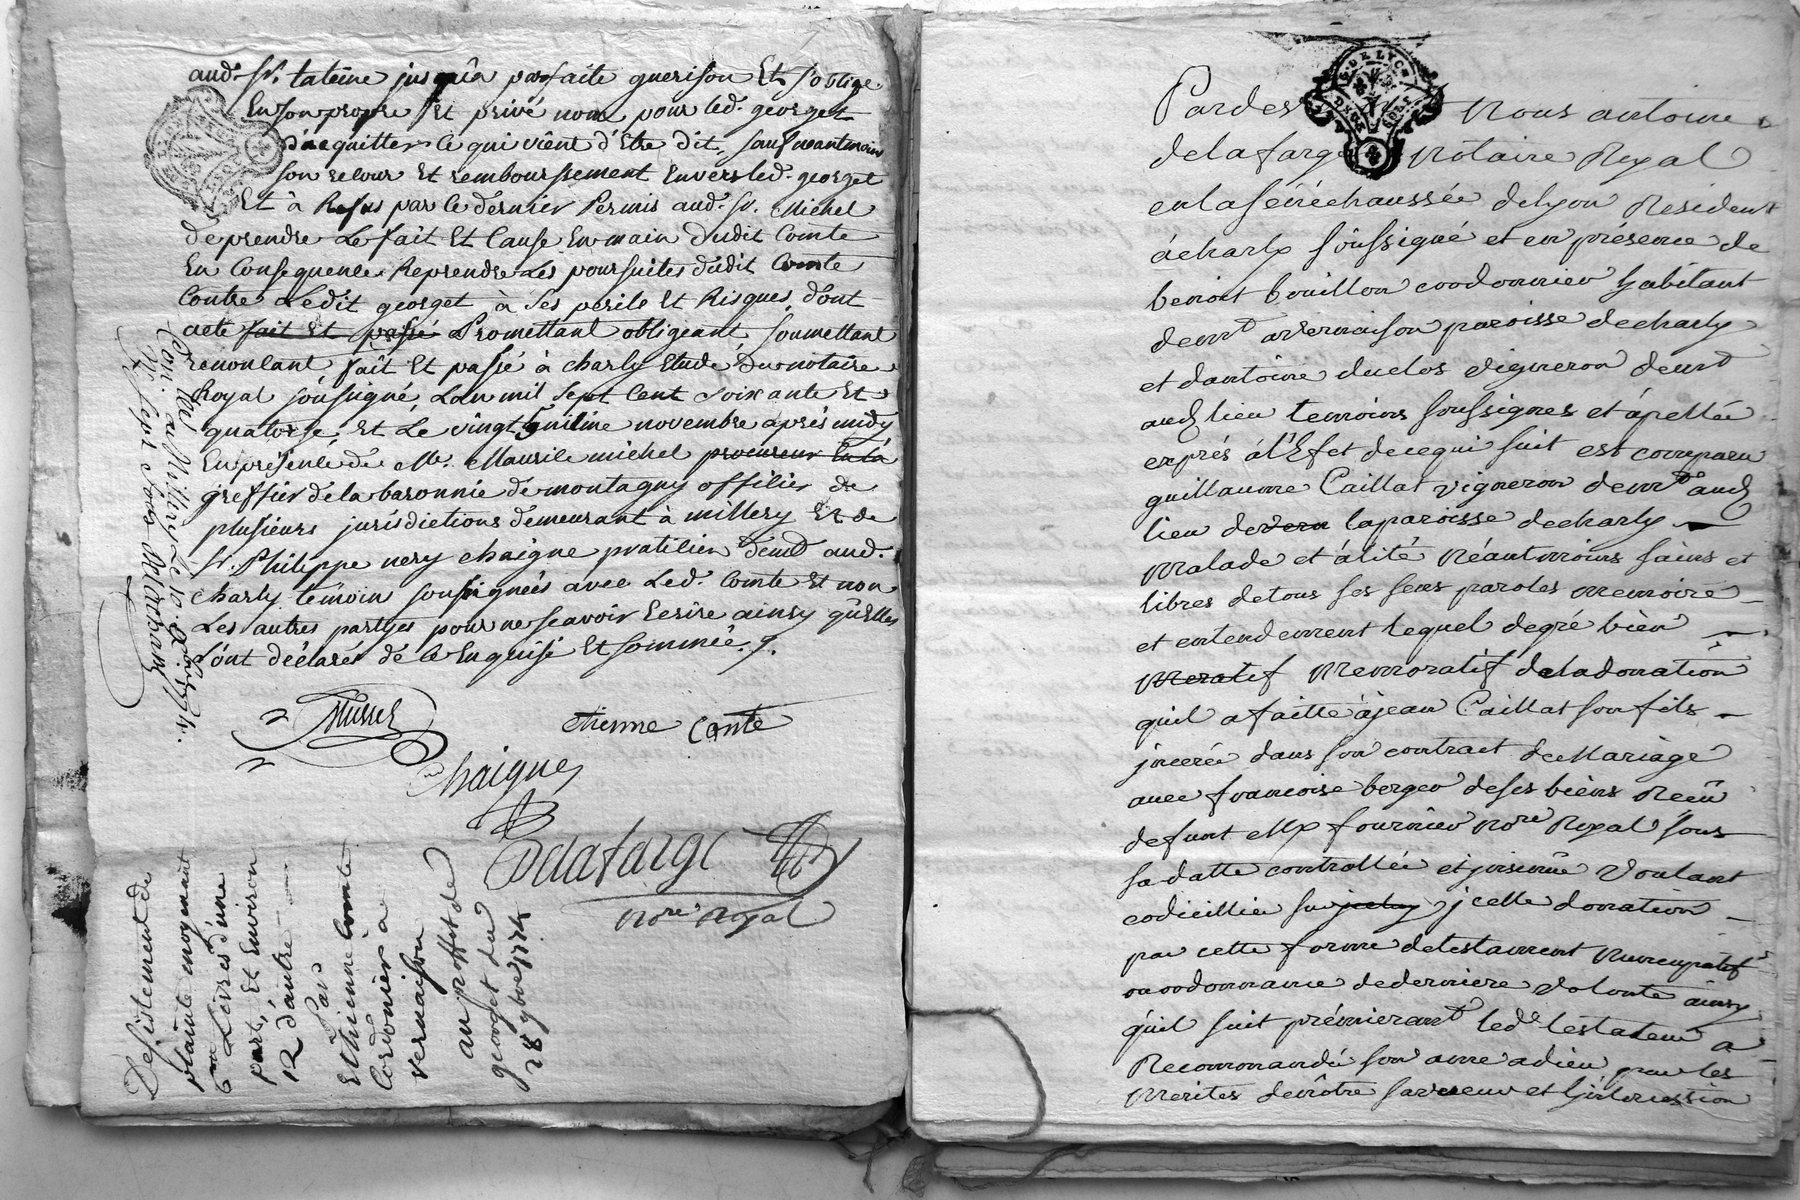 aud. Sr. tateine jusqu'a parfaite guerison Et s'oblige
En son propre Et privé nom pour led. georget
d'acquitter ce qui vient d'Etre dit, sauf neantmoins
son retour Et remboursement Envers led. georget
Et à Refus par ce dernier Permis aud. Sr. Michel
de prendre Le fait Et Cause En main dudit Comte
En Consequence Reprendre Les poursuites dudit Comte
Contre Ledit georget à ses perils Et Risques, dont
acte fait Et passé Promettant obligeant, soumettant
renonlant fait Et passé à charly Etude du notaire
Royal soussigné, L'an mil sept Cent soixante Et
quatorse, Et Le vingt huitime novembre après midy
En présence de Me. Maurile michel procureur En la
greffier de la baronnie de montagny officier de
plusieurs jurisdictions demeurant à millery Et de
Sr. Philippe nery chaigne praticien demt aud.
charly témoin soussignées avec Led. Comte Et non
Les autres partyes pour ne scavoir Ecrire ainsy qu'Elles
l'ont déclarés de ce Enquise Et sommée.
etienne Conte
Chaigne
Delafarge
nore Royal
Desistement de
plainte moyennant
6 Livres d'une
part, Et Environ
12 d'autre
Par
Ethienne Comte
Cordonier a
vernaison
au proffit de
georget du
28 9bre 1774
Pardes Nous antoine
delafarge Notaire Royal
en la sénéchaussée de lyon Resident
à charly soussigné et en présence de
benoit bouillon cordonnier habitant
demt a vernaison paroisse de charly
et d'antoine duclos vigneron demt
aud lieu temoins soussignes et apellée
exprés à l'Effet de ce qui suit est comparu
guillaume Caillat vigneron demt aud
lieu de la paroisse de charly
Malade et alité Néantmoins sains et
libres de tous ses sens paroles memoire
et entendement lequel degré bien
Meratif Memoratif de la donation
qu'il a faitte a jean Caillat son fils
jnserée dans son contract de Mariage
avec francoise berger de ses biens Recu
defunt Me fournier nore Royal sous
sa datte controllée et jnsinue Voulant
codicillier sur jcelle donation
par cette forme de testament Nuncupatif
ou ordonnance de derniere volonte ainsy
qu'il suit prémierant led testateur a
Recommandé son ame a dieu par les
Merites de nôtre sauveur et l'jntercession